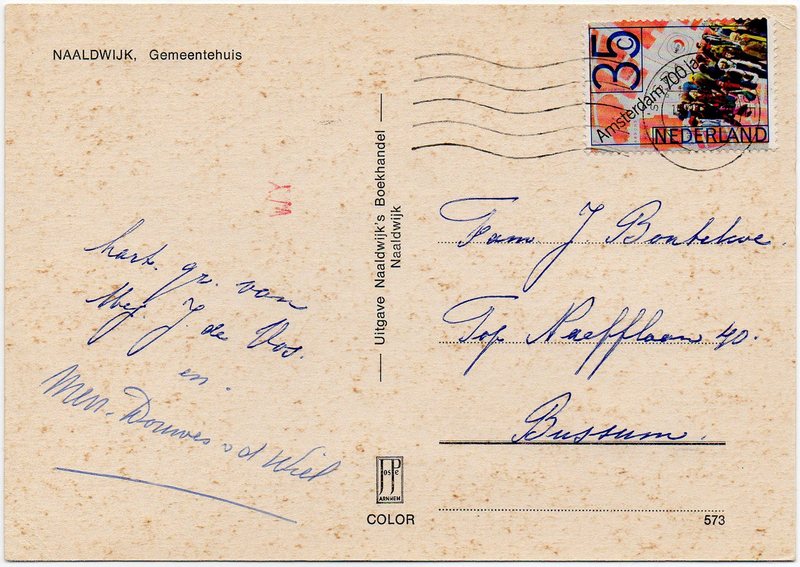 NAALDWIJK, Gemeentehuis
35c
Amsterdam 700 jaar
NEDERLAND
Uitgave Naaldwijk's Boekhandel
Naaldwijk
hart. gr. van
Mej J. de Vos.
en.
Mevr. Douwes v d Wiel
Fam. J. Bontekoe.
Top Naefflaan 40.
Bussum.
JosPe
ARNHEM
COLOR
573